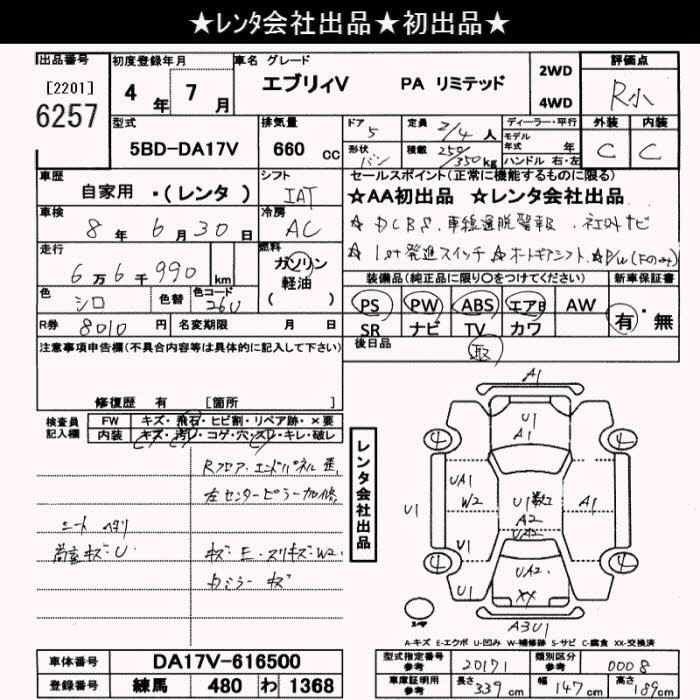 ★レンタ会社出品★初出品★
出品番号 初度登録年月 車名 グレード 評価点
[2201] 4年 7月 エブリィV PA リミテッド 2WD R小
6257 4WD
型式 排気量 ドア 定員 ディーラー・平行 外装 内装
5BD-DA17V 660 cc 5 2/4人 モデル年式 年 C C
形状 バン 積載 250/350kg ハンドル 右・左
車歴 シフト セールスポイント(正常に機能するものに限る)
自家用 ・(レンタ) IAT ☆AA初出品 ☆レンタ会社出品
車検 冷房 ☆DCBS、車線逸脱警報、社外ナビ
8年 6月 30日 AC
走行 燃料 ☆1st発進スイッチ ☆オートギアシフト、☆P/W(Fのみ)
6万6千990 km ガソリン 軽油 ( )
装備品(純正品に限り○をつけてください) 新車保証書
色 シロ 色替 色コード 26U PS PW ABS エアB AW 有・無
R券 8010円 名変期限 月 日 SR ナビ TV カワ
注意事項申告欄(不具合内容等は具体的に記入して下さい) 後日品 取
修復歴 有 [箇所
検査員記入欄 FW キズ・飛石・ヒビ割・リペア跡・×要
内装 キズ・汚レ・コゲ・穴・スレ・キレ・破レ
Rフロア、エンドパネル歪、
左センターピラー加修、
シート ヘタリ
荷室キズ・U キズ・E・スリキズ・W2、
カミラー キズ
レンタ会社出品
A1
U1
A1
4 4
UA1
W2 U1 A1
U1 A2
UA2
4 4
U1 UA2
XX
U1
A3U1
A-キズ E-エクボ U-凹み W-補修跡 S-サビ C-腐食 XX-交換済
車体番号 DA17V-616500 型式指定番号 参考 20171 類別区分 参考 0008
登録番号 練馬 480 わ 1368 車庫証明用 参考 長さ 339cm 幅 147cm 高さ 189cm